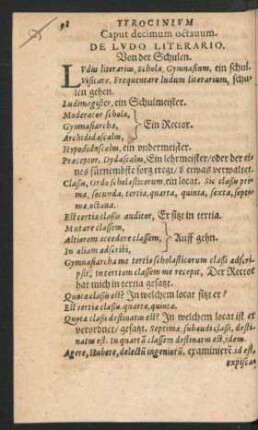 98 TYROCINIVM
Caput decimum octauum.
DE LVDO LITERARIO.
Von der Schulen.
LVdus literarius, Schola, Gymnasium, ein schul.
Visitare. Frequentare ludum literarium, schu
len gehen.
Ludimagister, ein Schulmeister.
Moderator schola,
Gymnasiarcha, Ein Rector.
Archididascalus,
Hypodidascalus, ein undermeister.
Præceptor, Dydascalus, Ein lehrmeister/ oder der ei-
nes fürnembste sorg tregt/ etwas verwaltet.
Classis, Ordo scholasticorum, ein locat. Sic classis pri-
ma, secunda, tertia, quarta, quinta, sexta, septi-
ma, octaua.
Est tertiæ classis auditor, Er sitzt in tertia.
Mutare classem,
Altiorem accedere classem, Auff gehn.
In aliam adscribi,
Gymnasiarcha me tertiæ scholasticorum classi adscri-
psit, in tertiam classem me recepit, Der Rector
hat mich in tertia gesatzt.
Quotæ classis est? In welchem locat sitzt er?
Est tertiæ classis, quartæ, quintæ.
Quotæ classi destinatus est? In welchem locat ist er
verordnet/ gesatzt. Septimæ subaudi classi, desti-
natus est. In quartam classem destinatus est, idem.
Agere, Habere, delectum ingeniorum, examinieren id est,
expisca-